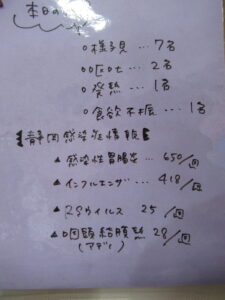 本日の
○様子見…7名
○嘔吐…2名
○発熱…1名
○食欲不振…1名
【静岡感染症情報】
▲感染性胃腸炎…650/回
▲インフルエンザ…418/回
▲RSウイルス 25/回
▲咽頭結膜熱 28/回
(アデノ)